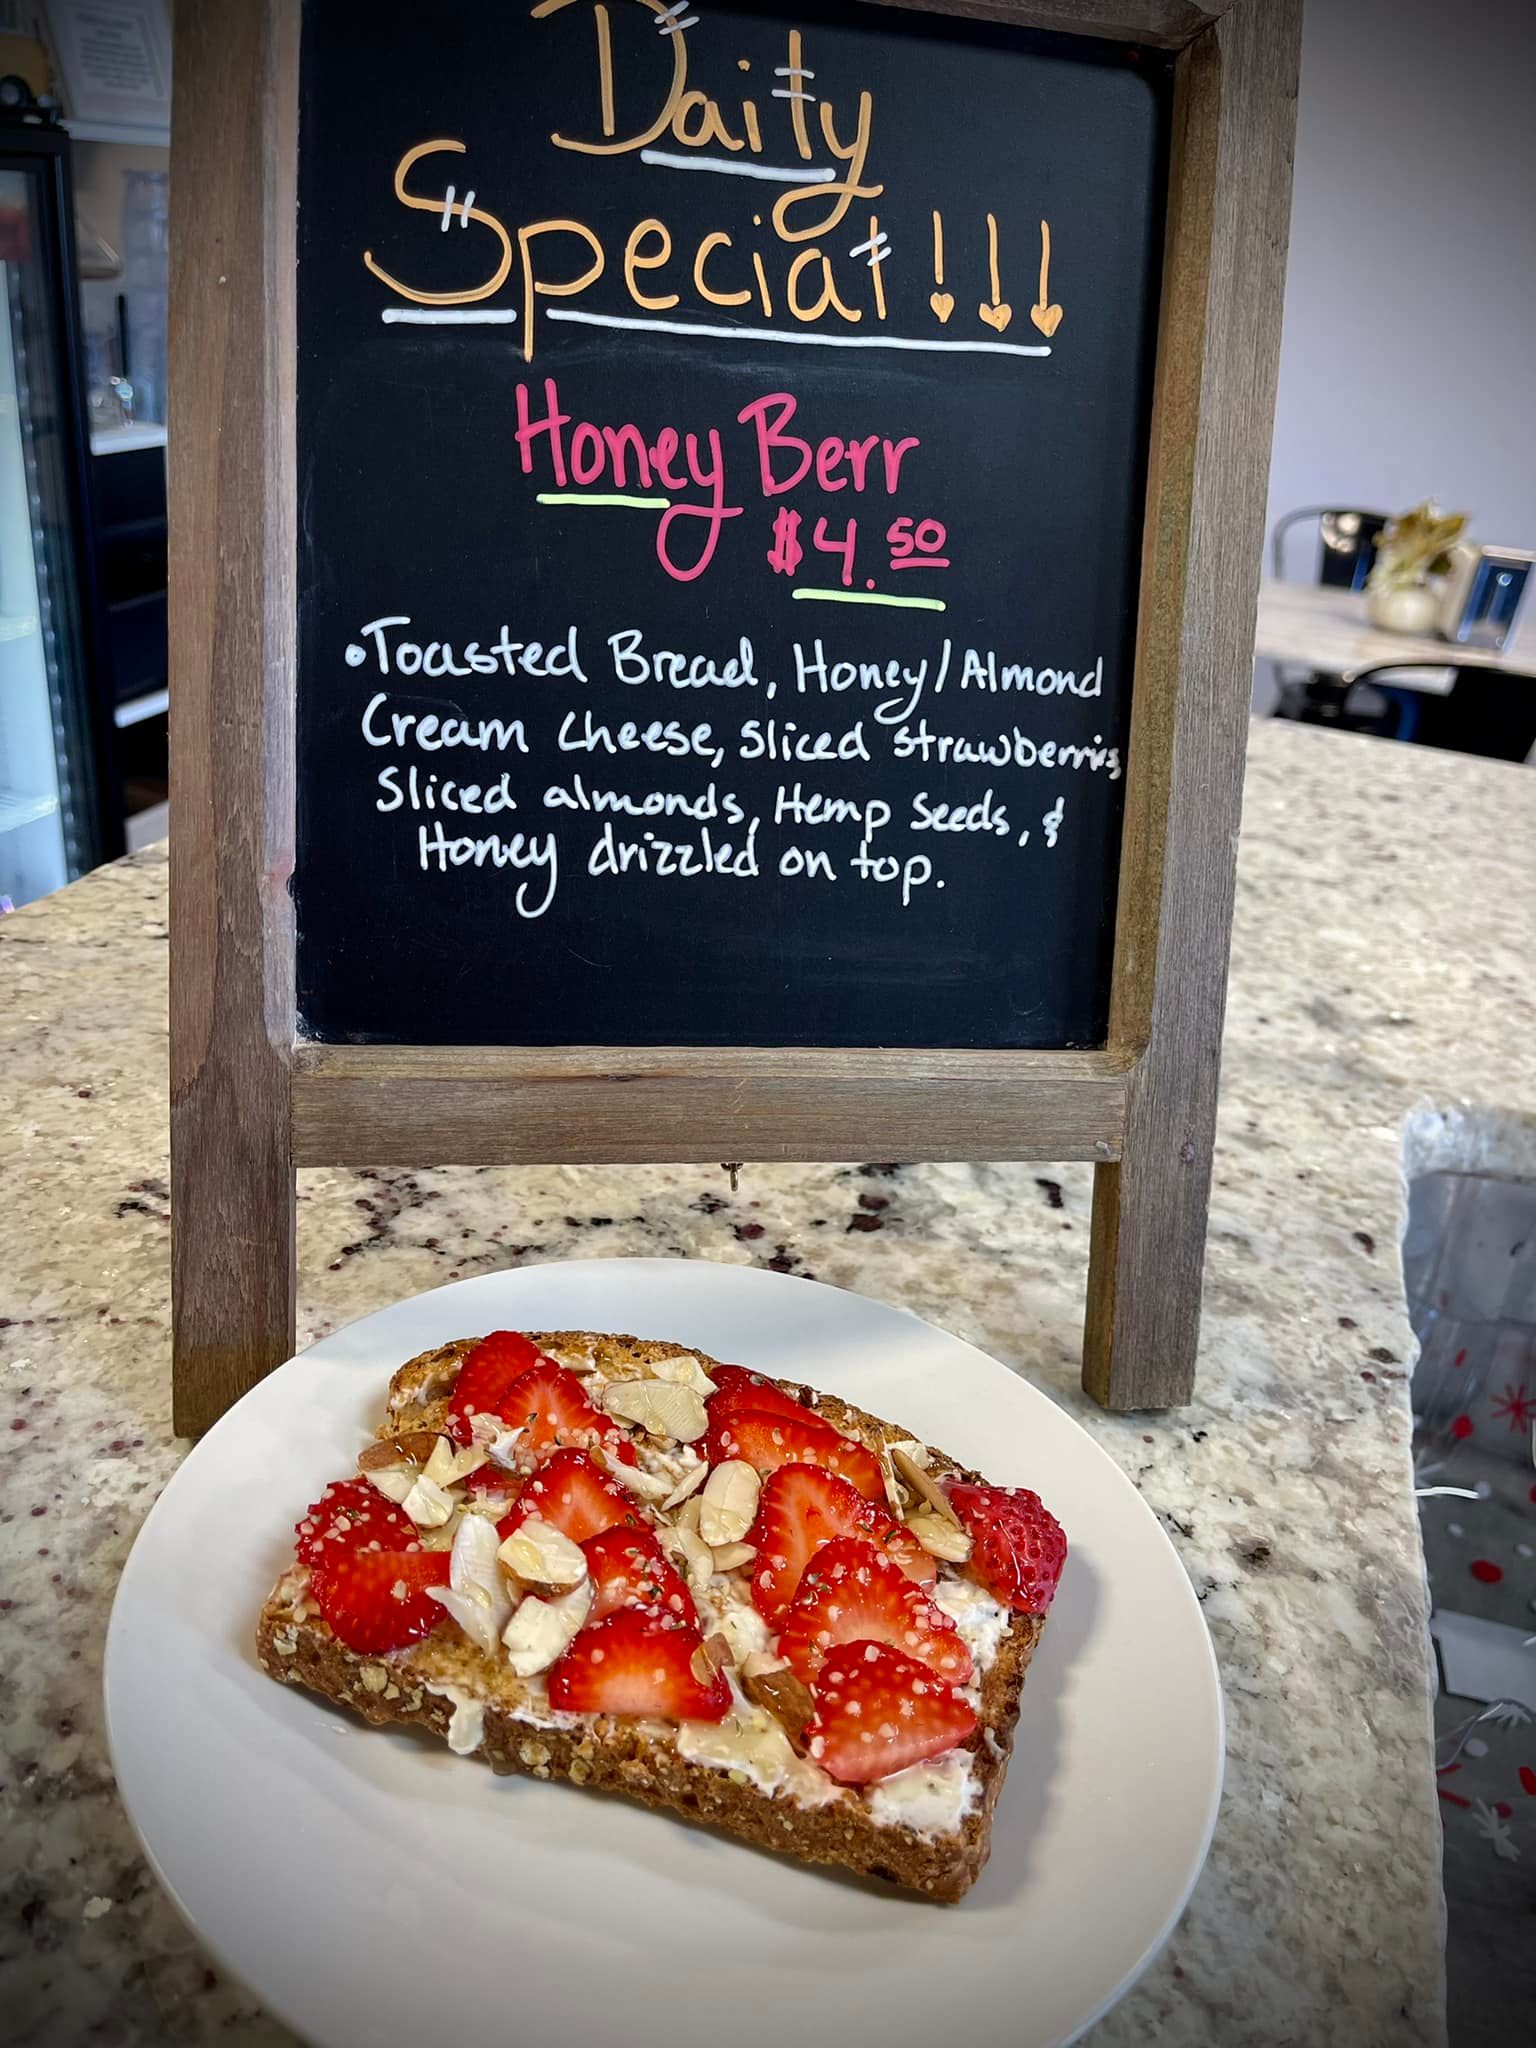 Daily
Special!!!
Honey Berr
$4.50
•Toasted Bread, Honey/Almond
Cream Cheese, Sliced strawberries,
Sliced almonds, Hemp Seeds, &
Honey drizzled on top.